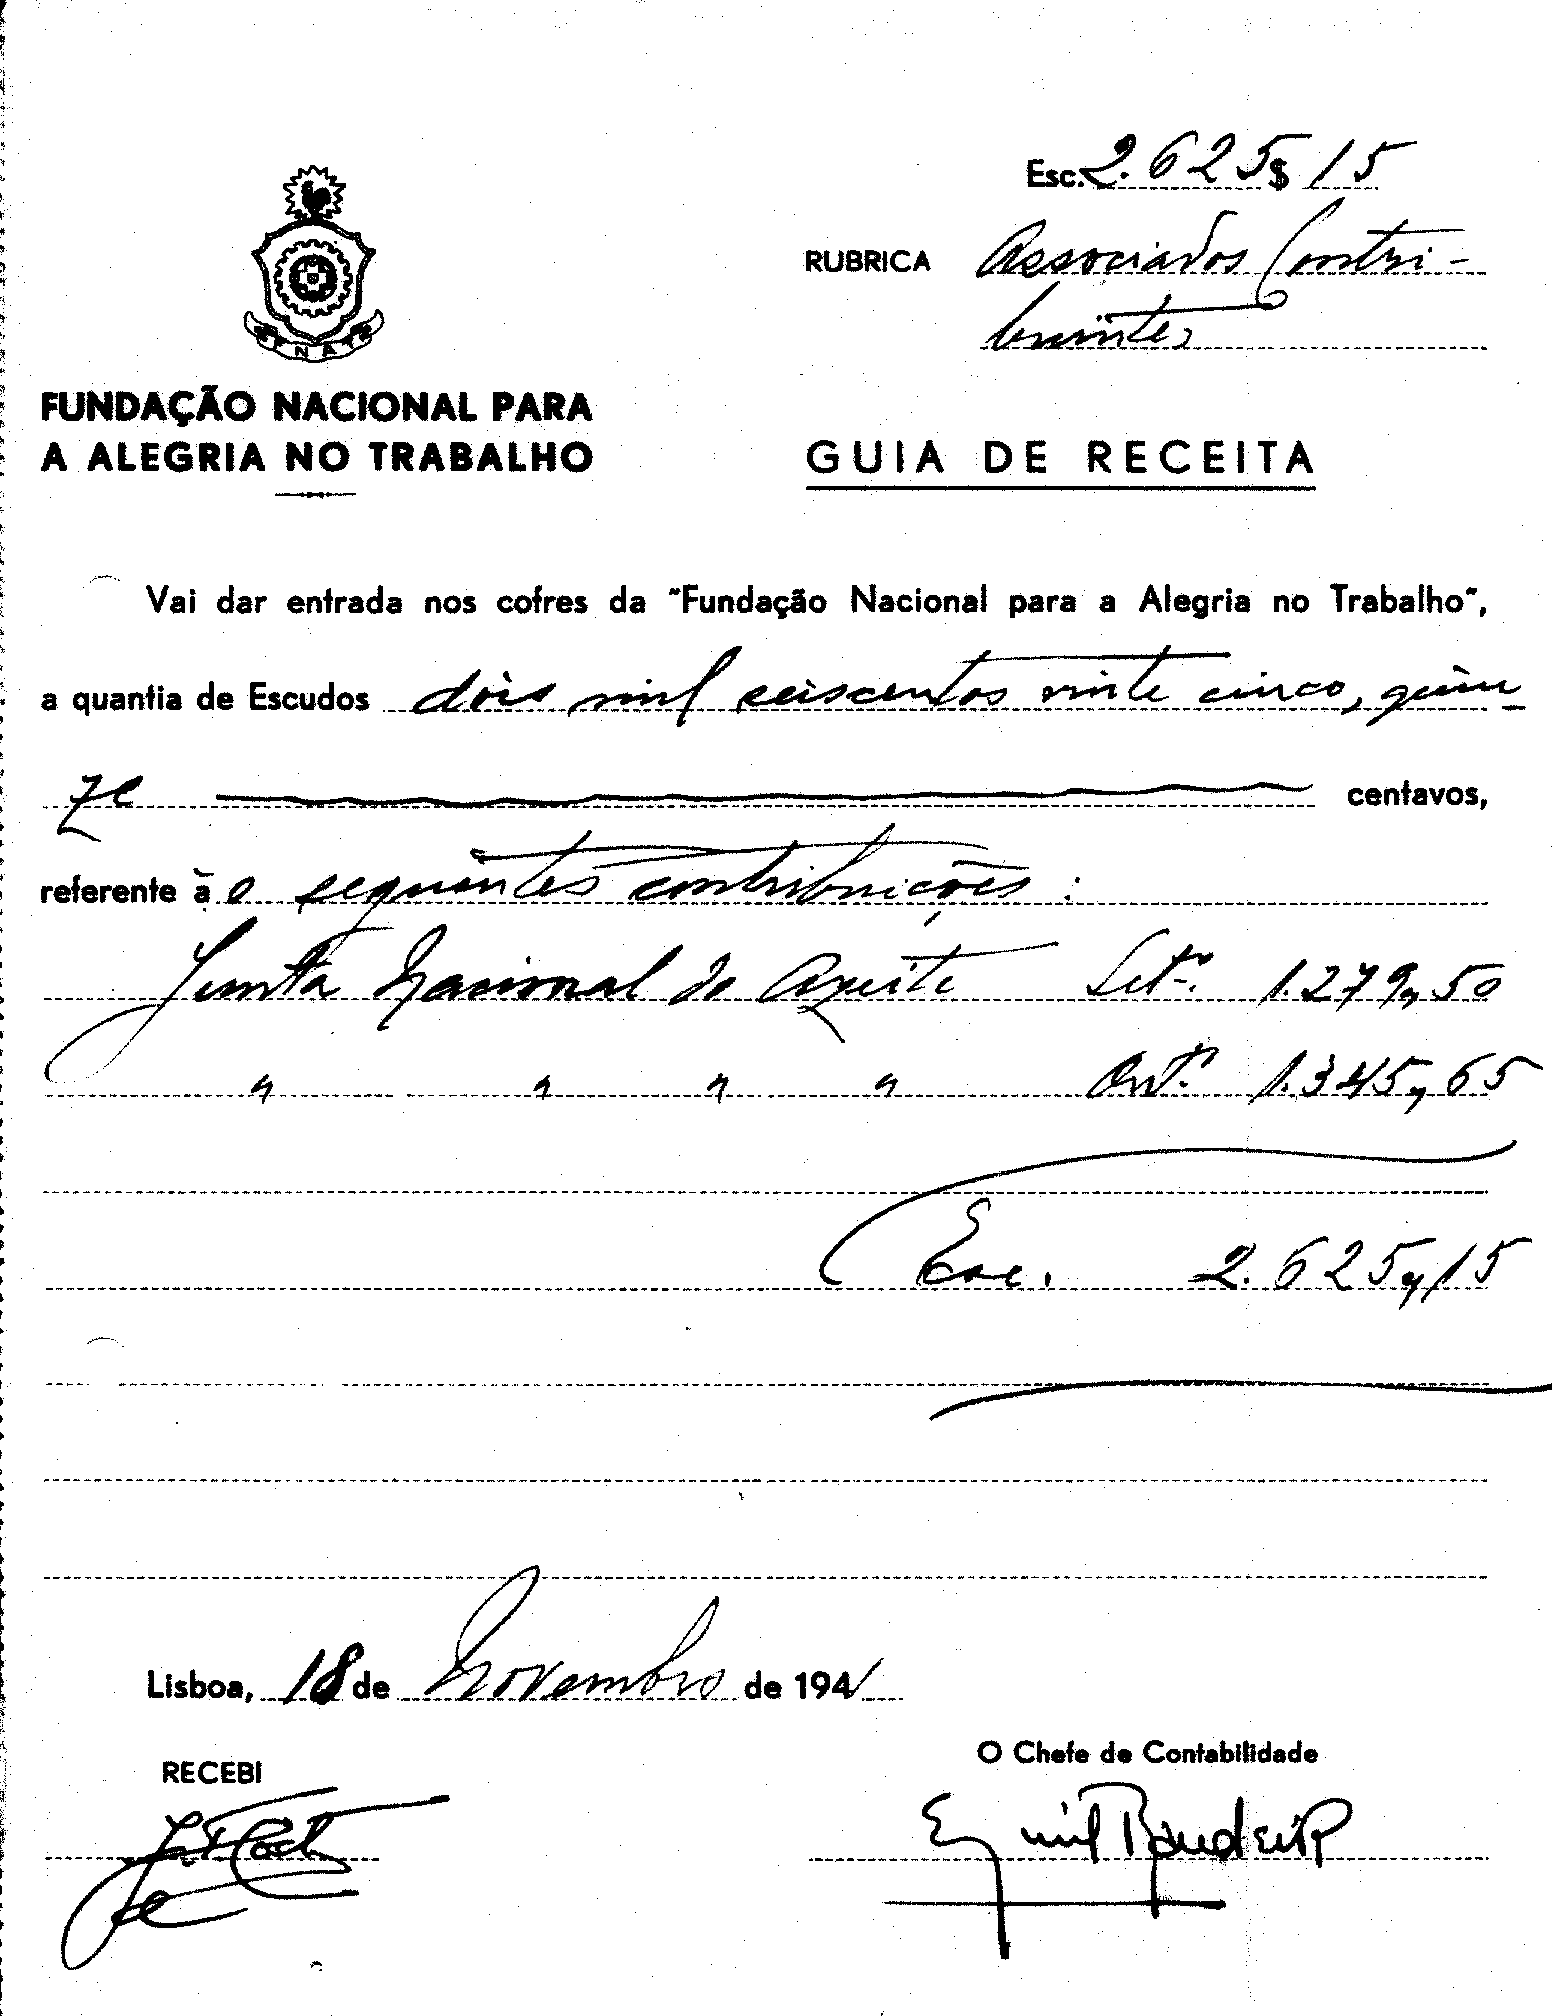 Esc. 2.625$15
RUBRICA Associados Contri-
buintes
FNAT
FUNDAÇÃO NACIONAL PARA
A ALEGRIA NO TRABALHO
GUIA DE RECEITA
Vai dar entrada nos cofres da "Fundação Nacional para a Alegria no Trabalho",
a quantia de Escudos dois mil seiscentos vinte cinco, quin-
ze centavos,
referente à o seguintes contribuições:
Junta Nacional do Azeite Setº. 1.279,50
" " " " Outº. 1.345,65
Esc. 2.625,15
Lisboa, 18 de Novembro de 1941
RECEBI
O Chefe de Contabilidade